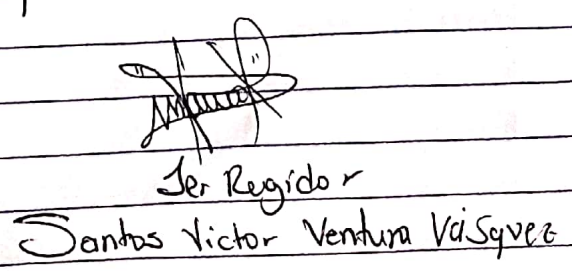 1er Regidor
Santos Victor Ventura Vásquez